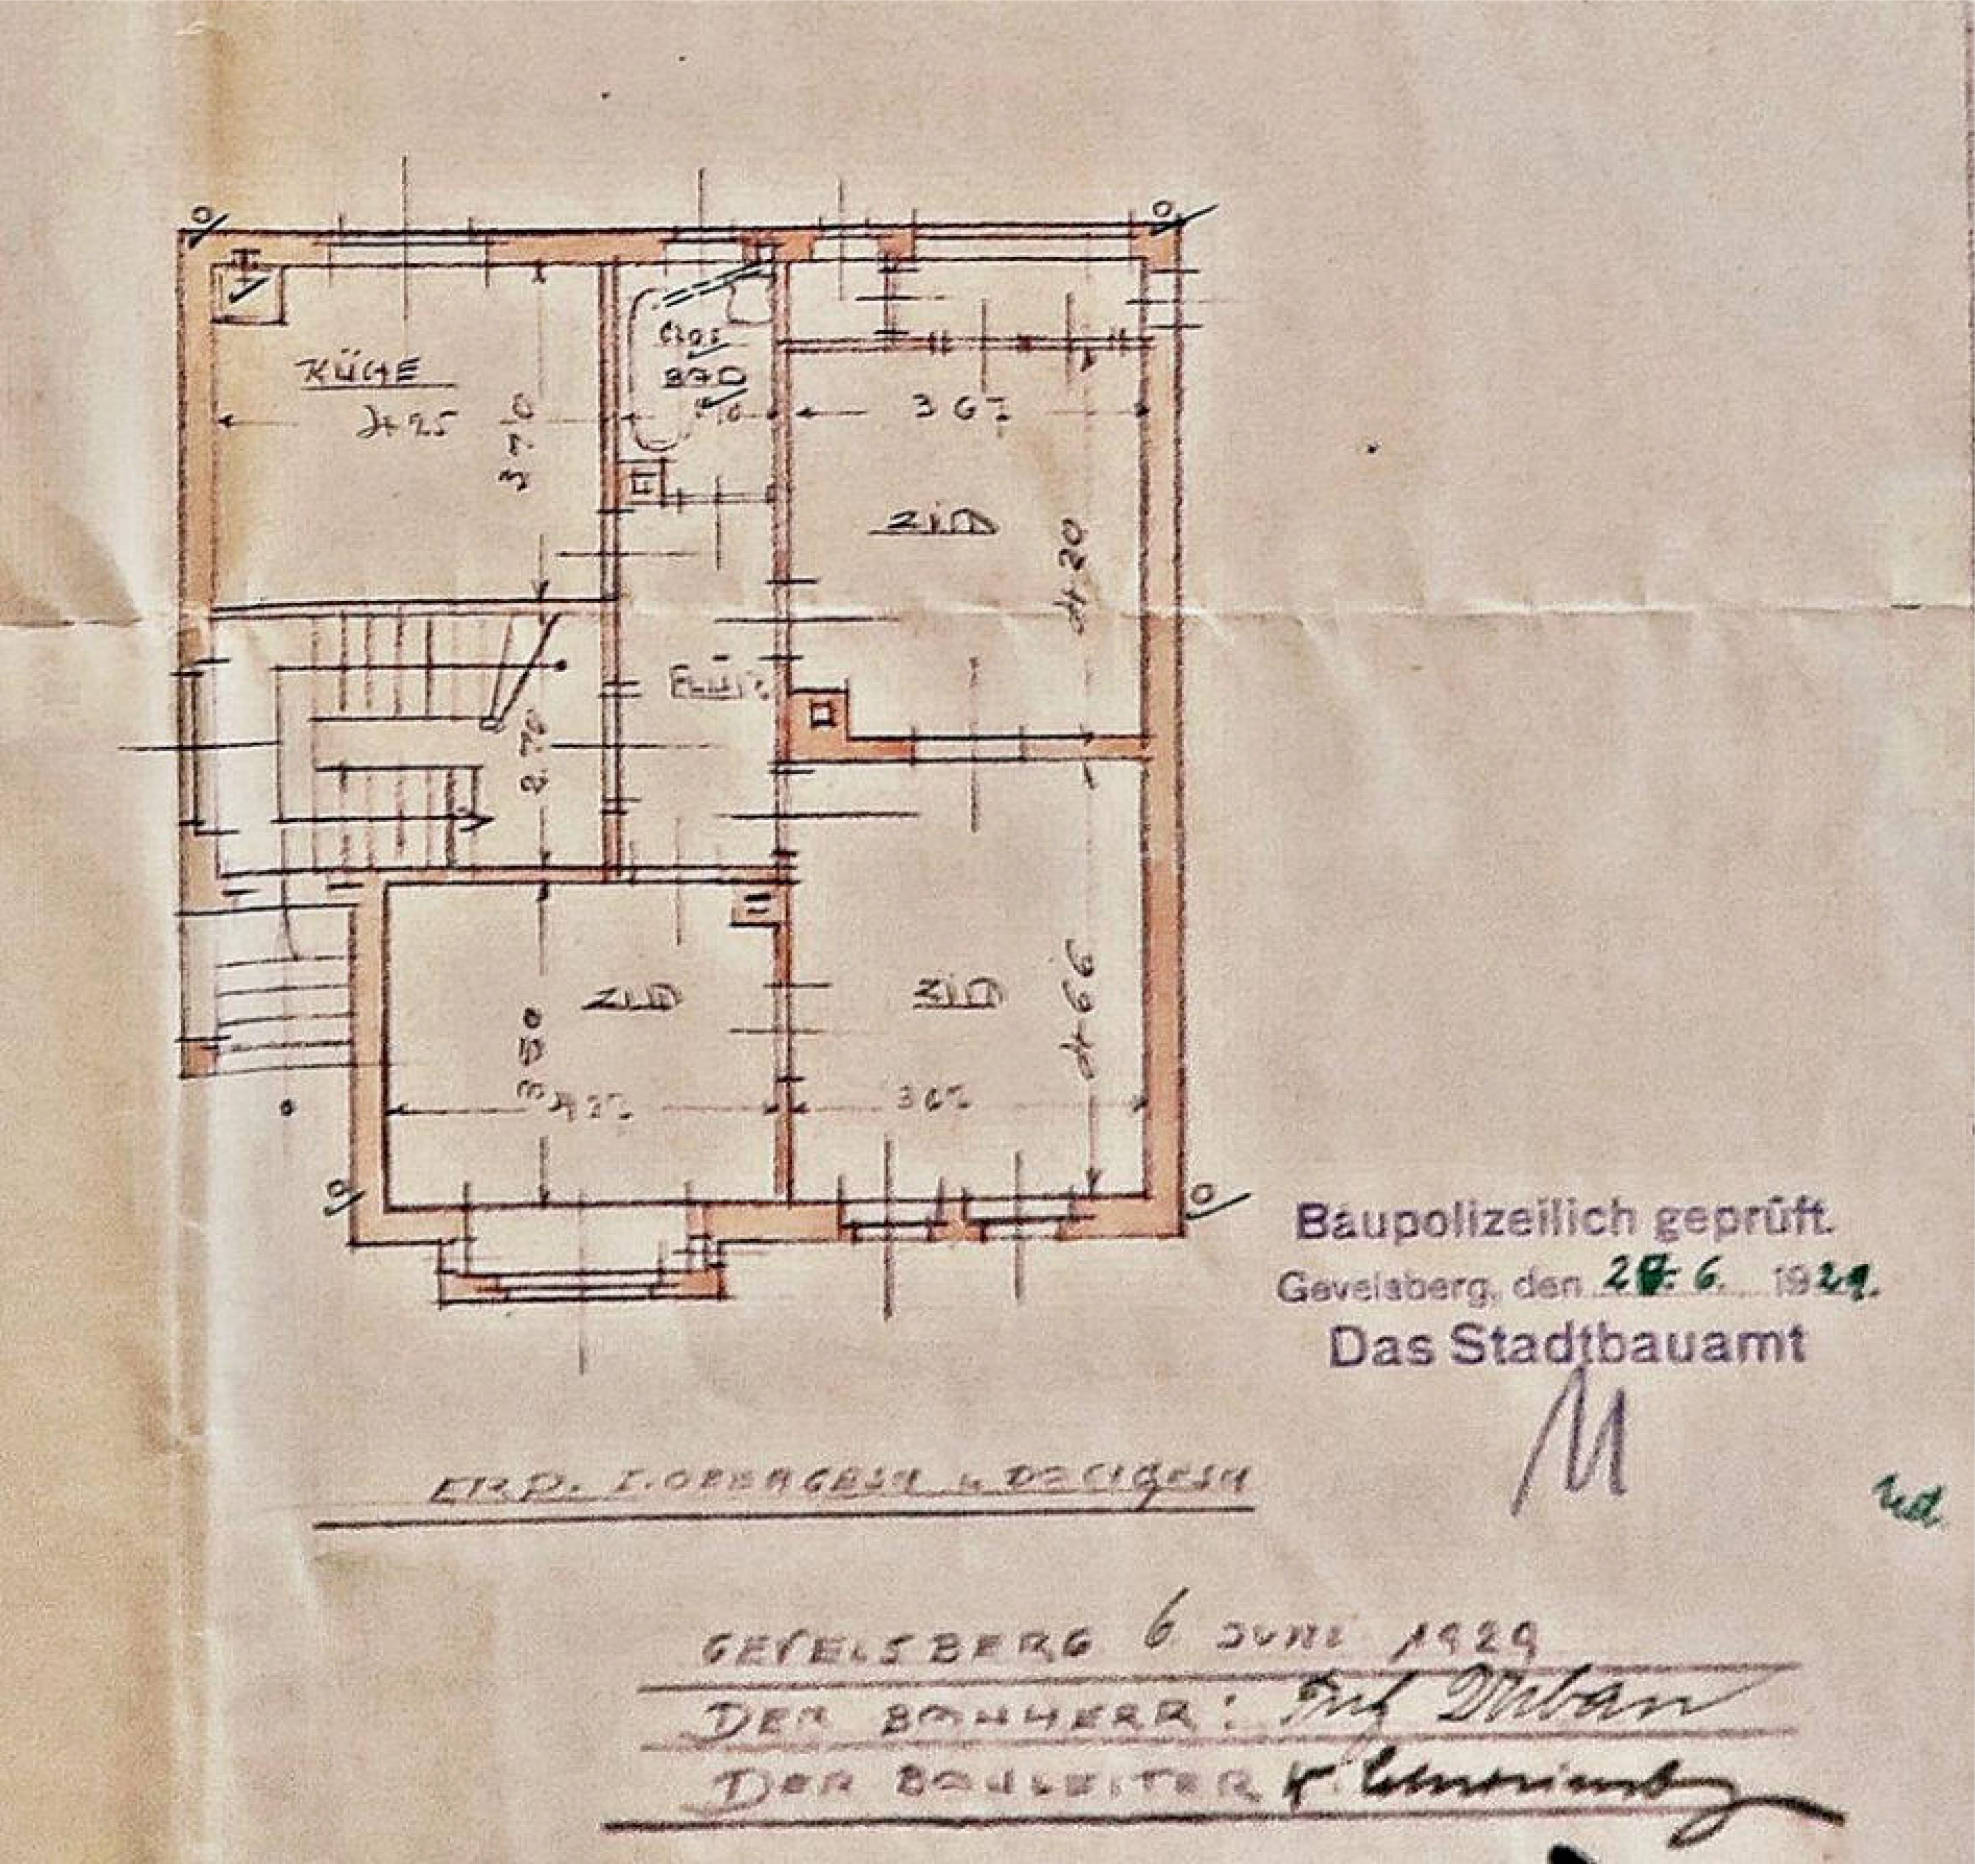 KÜCHE
4 25
3 70
Clos
BAD
3 67
ZIM
4 20
FLUR
2 70
ZIM
ZIM
3 50
4 66
Baupolizeilich geprüft.
Gevelsberg, den 6. 1929.
Das Stadtbauamt
ERD. I. OBERGESCH u. DACHGESCH
GEVELSBERG 6 JUNI 1929
DER BAUHERR:
DER BAULEITER